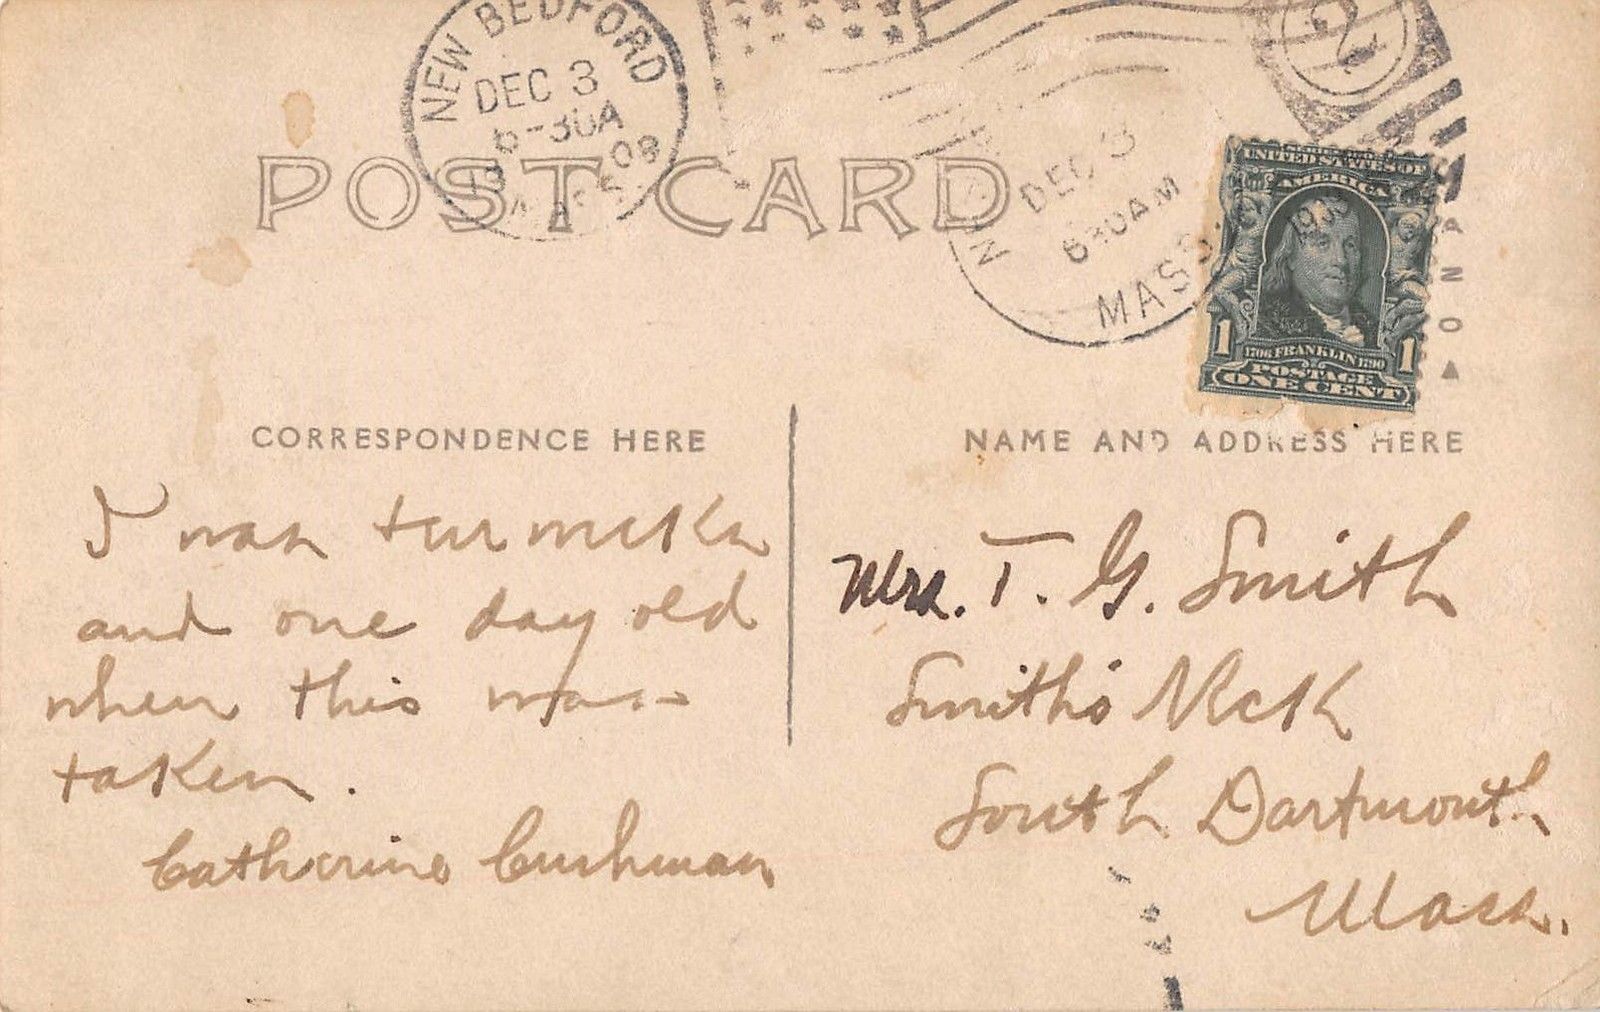 NEW BEDFORD
DEC 3
6-30A
1908
MASS.
DEC 3
630AM
MASS.
UNITED STATES OF
AMERICA
1
1706 FRANKLIN 1790
1
POSTAGE
ONE CENT
POST CARD
CORRESPONDENCE HERE
NAME AND ADDRESS HERE
I was ten weeks
and one day old
when this was
taken.
Catherine Cushman
Mrs. T. G. Smith
Smith's Neck
South Dartmouth
Mass.